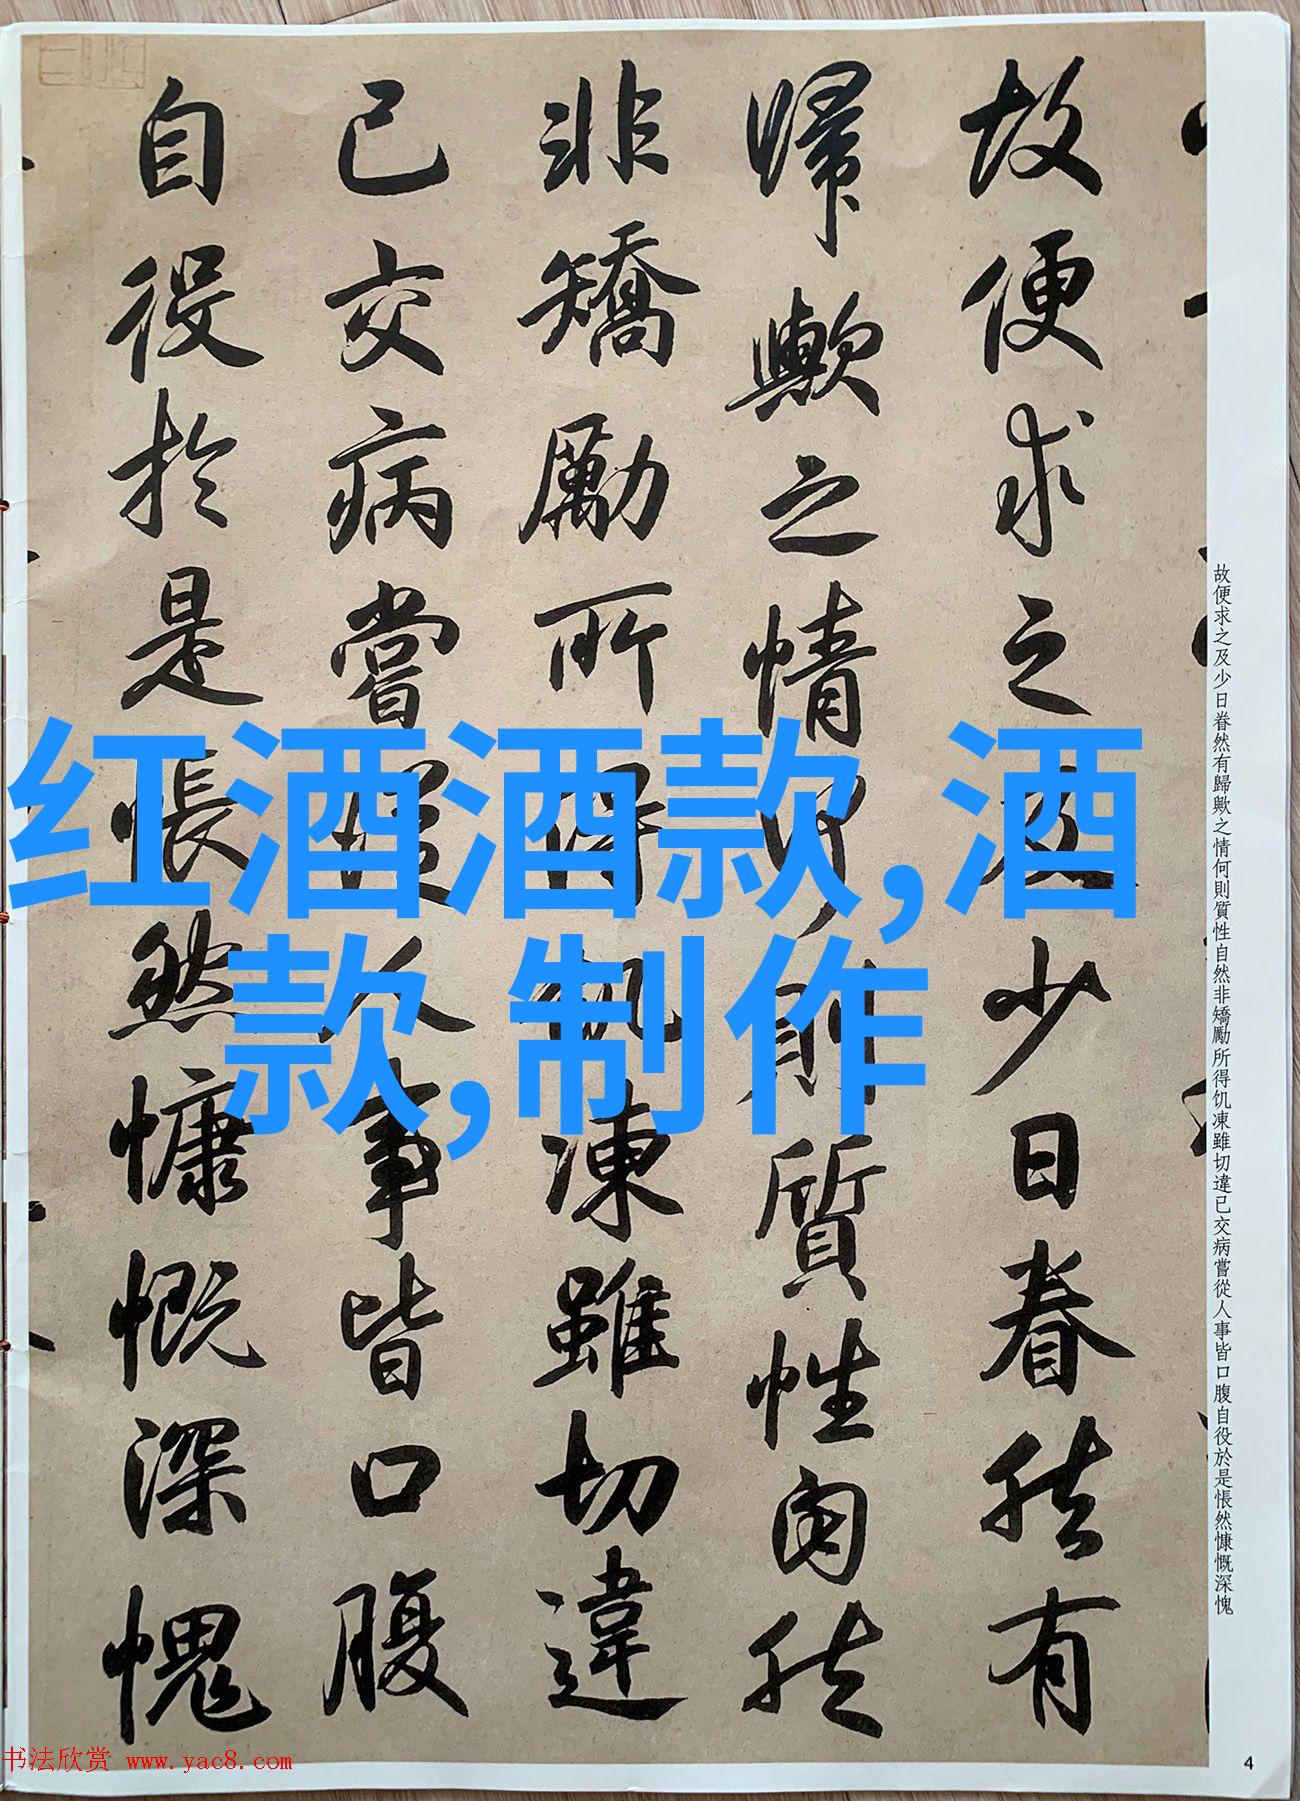 故便求之及少日眷然有
歸歟之情何則質性自然
非矯勵所得飢凍雖切違
已交病嘗從人事皆口腹
自役於是悵然慷慨深愧
故便求之及少日眷然有歸歟之情何則質性自然非矯勵所得饥凍雖切違已交病嘗從人事皆口腹自役於是悵然慷慨深愧
红酒酒款,酒
款,制作
书法欣赏 www.yac8.com
4